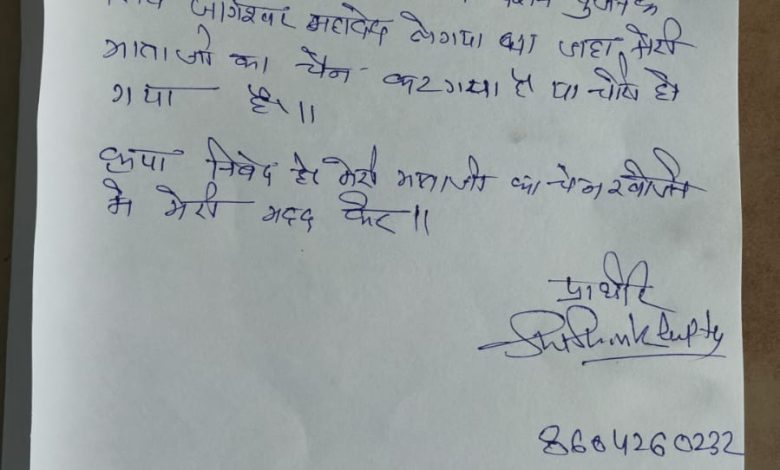 जागेश्वर महादेव लेगया था जहा, मेरी
माताजी का चैन कट गया है या चोरी हो
गया है।।
कृपा निवेद है। मेरी माताजी का चैन खोजने
मे मेरी मदद करे।।
प्राथी
Gupta
8604260232